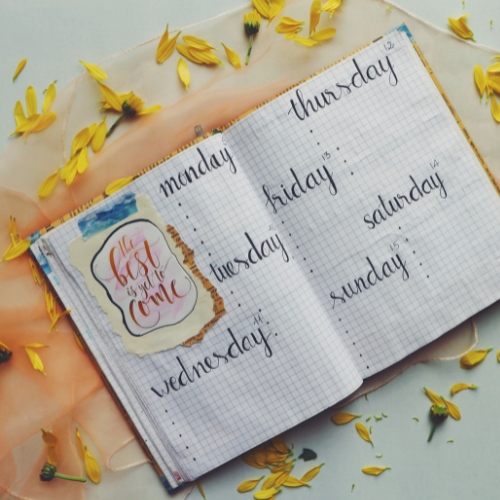 the
best
is yet to
come
monday
tuesday
wednesday
11
thursday
12
friday
13
saturday
14
sunday
15